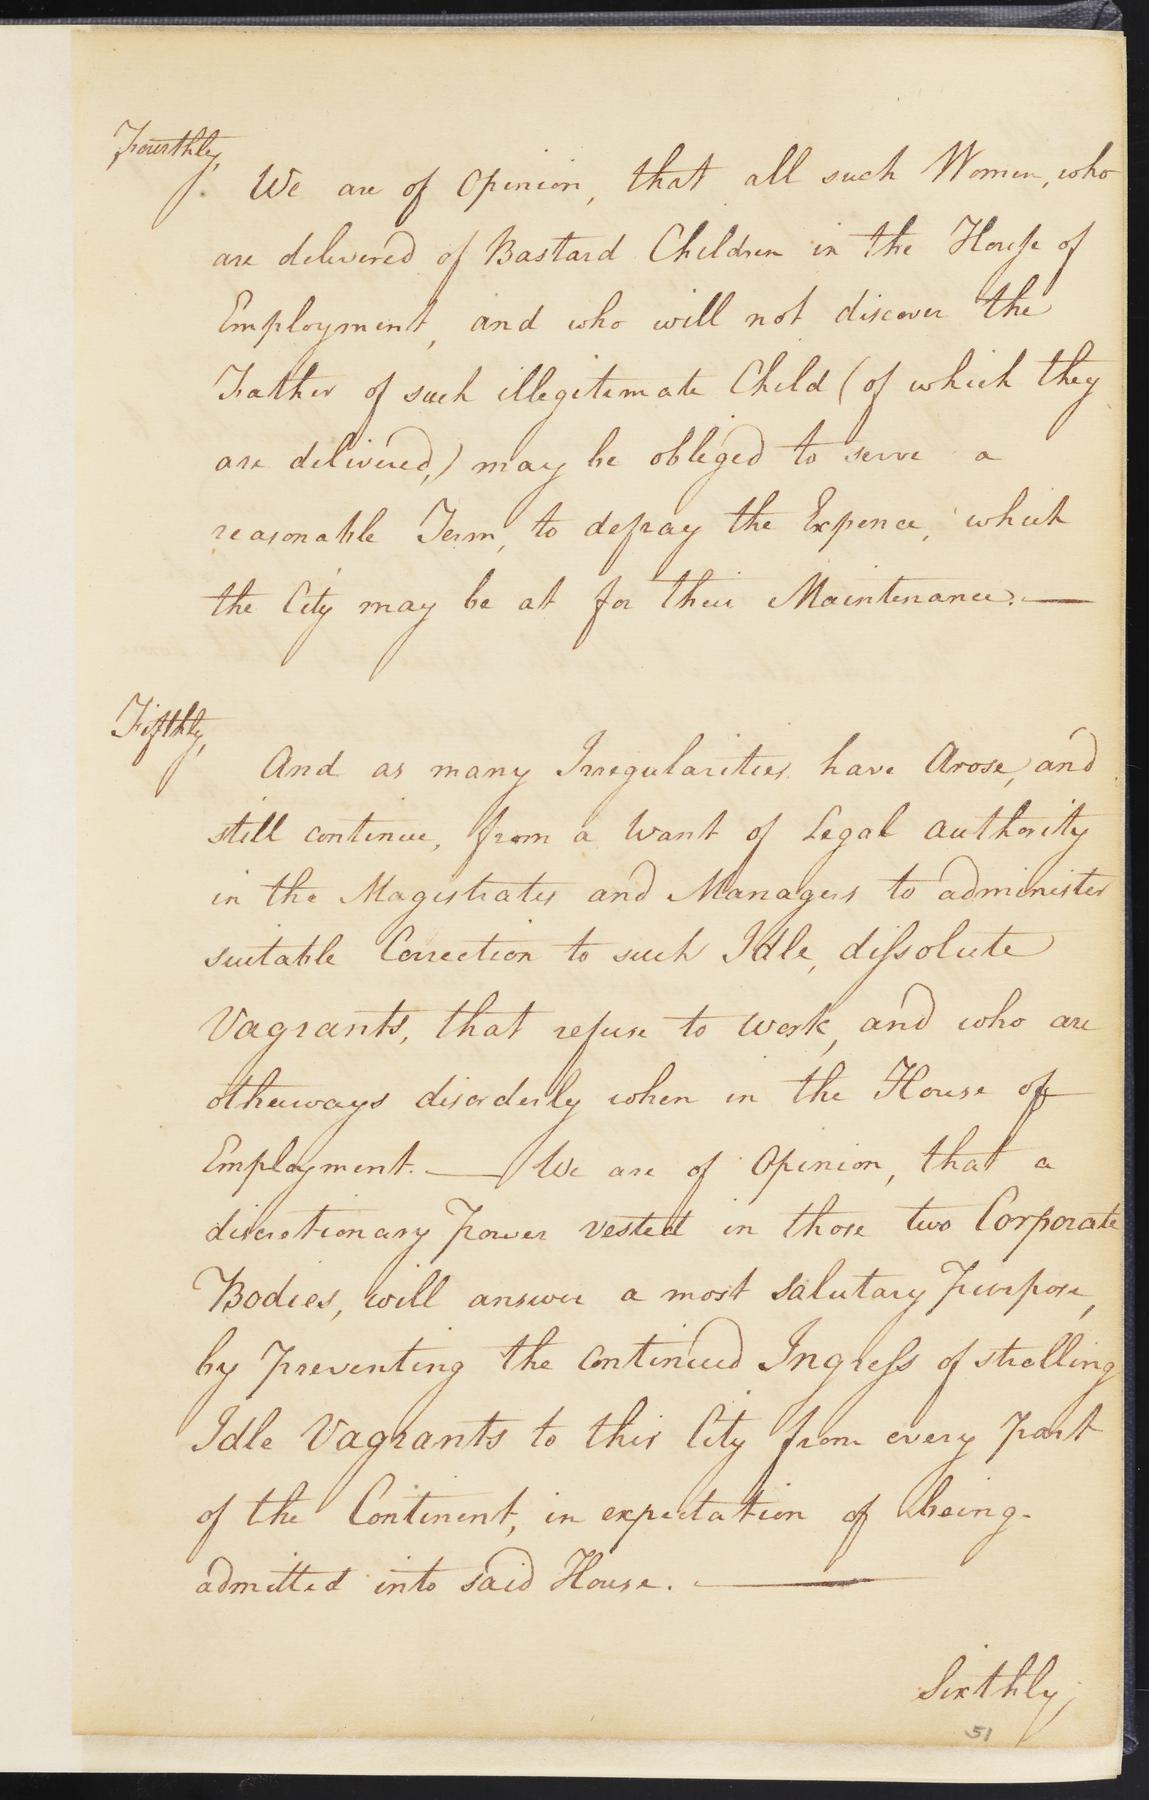 Fourthly,
We are of Opinion, that all such Women, who
are delivered of Bastard Children in the House of
Employment, and who will not discover the
Father of such illegitemate Child (of which they
are delivered,) may be obleged to serve a
reasonable Term, to defray the Expence, which
the City may be at for their Maintenance. —
Fifthly,
And as many Irregularities have Arose, and
still continue, from a Want of Legal Authority
in the Magistrates and Managers to administer
suitable Correction to such Idle, dissolute
Vagrants, that refuse to Work, and who are
otherways disorderly when in the House of
Employment. — We are of Opinion, that a
discretionary Power vested in those two Corporate
Bodies, will answer a most Salutary Purpose,
by Preventing the Continued Ingress of strolling
Idle Vagrants to this City from every Part
of the Continent, in expectation of being
admitted into said House. —
Sixthly,
51